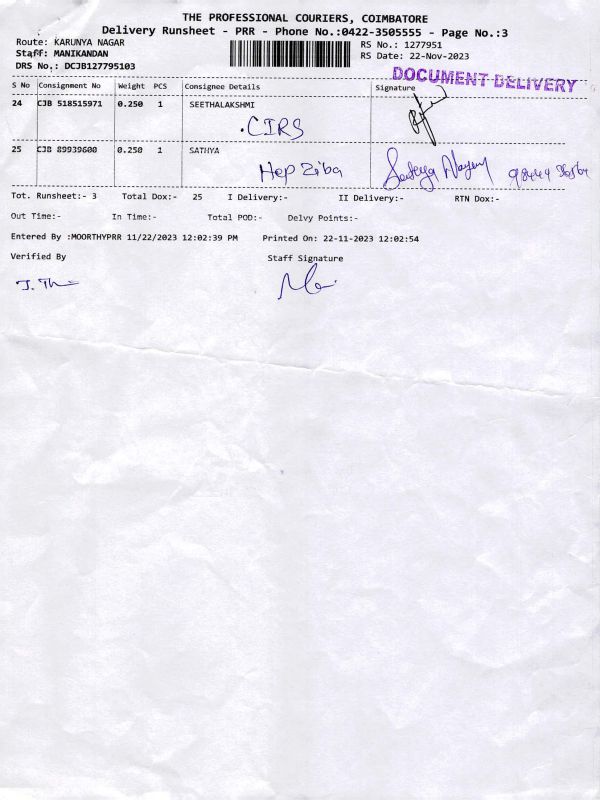 THE PROFESSIONAL COURIERS, COIMBATORE
Delivery Runsheet - PRR - Phone No.:0422-3505555 - Page No.:3
Route: KARUNYA NAGAR
RS No.: 1277951
Staff: MANIKANDAN
RS Date: 22-Nov-2023
DRS No.: DCJB127795103
DOCUMENT DELIVERY
S No Consignment No Weight PCS Consignee Details Signature
24 CJB 518515971 0.250 1 SEETHALAKSHMI
.CIRS
25 CJB 89939600 0.250 1 SATHYA
Hep Ziba
Tot. Runsheet:- 3 Total Dox:- 25 I Delivery:- II Delivery:- RTN Dox:-
Out Time:- In Time:- Total POD:- Delvy Points:-
Entered By :MOORTHYPRR 11/22/2023 12:02:39 PM Printed On: 22-11-2023 12:02:54
Verified By Staff Signature